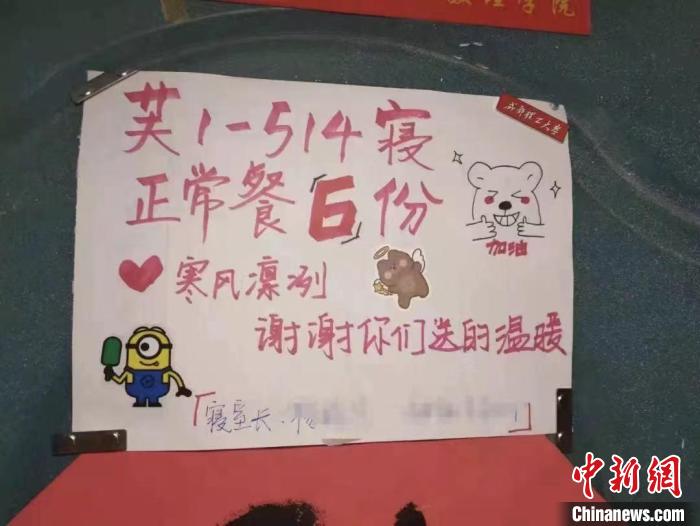 理学院
成都理工大学
芙1-514寝
正常餐「6」份
加油
寒风凛冽
谢谢你们送的温暖
「寝室长、
」
中新网
Chinanews.com